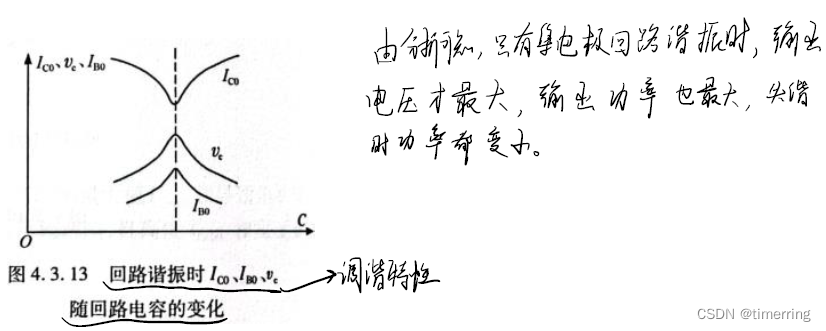 I_C0、v_c、I_B0
I_C0
v_c
I_B0
C
O
图 4.3.13 回路谐振时 I_C0、I_B0、v_c
随回路电容的变化
调谐特性
由分析可知，只有集电极回路谐振时，输出
电压才最大，输出功率也最大，失谐
时功率都变小。
CSDN @timerring